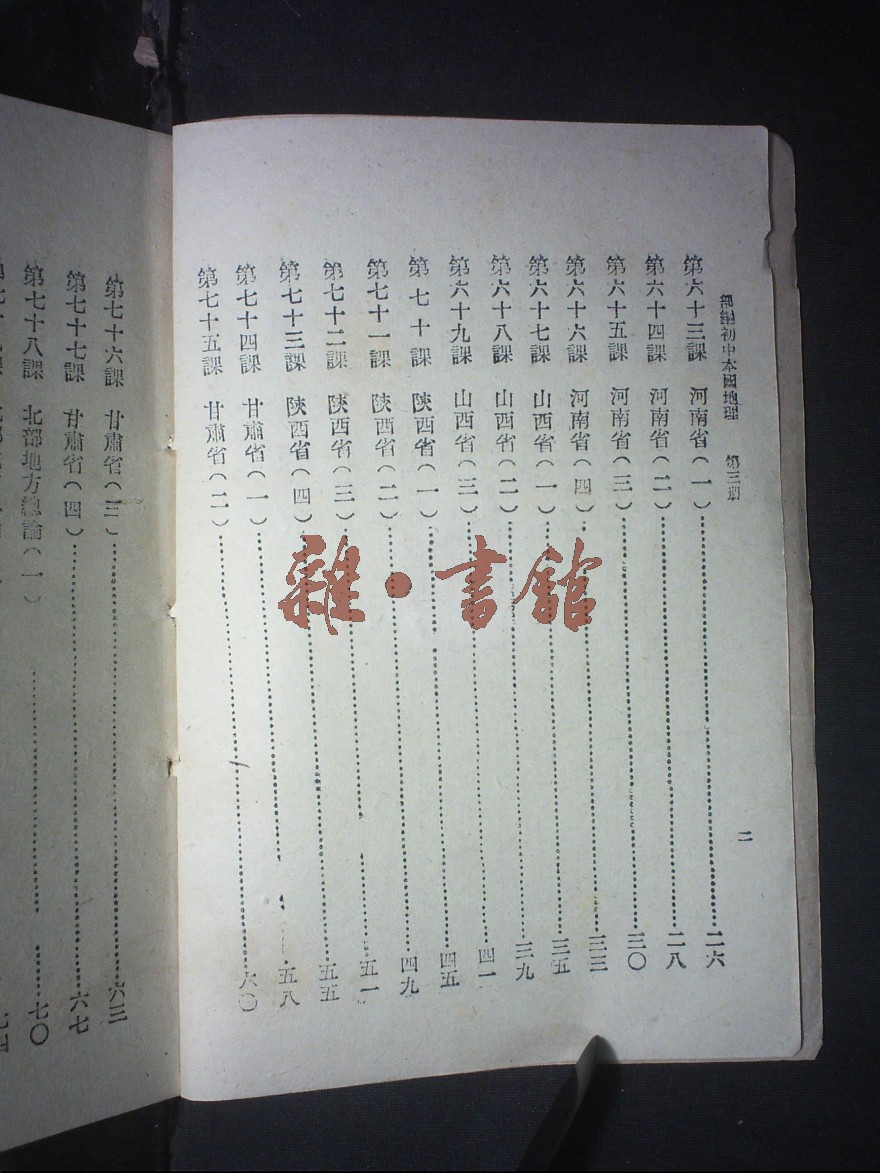 部編初中本國地理　第三册
二
第六十三課　河南省(一)……二六
第六十四課　河南省(二)……二八
第六十五課　河南省(三)……三〇
第六十六課　河南省(四)……三三
第六十七課　山西省(一)……三五
第六十八課　山西省(二)……三九
第六十九課　山西省(三)……四一
第七十課　陝西省(一)……四五
第七十一課　陝西省(二)……四九
第七十二課　陝西省(三)……五一
第七十三課　陝西省(四)……五五
第七十四課　甘肅省(一)……五八
第七十五課　甘肅省(二)……六〇
第七十六課　甘肅省(三)……六三
第七十七課　甘肅省(四)……六七
第七十八課　北部地方總論(一)……七〇
雜·書館